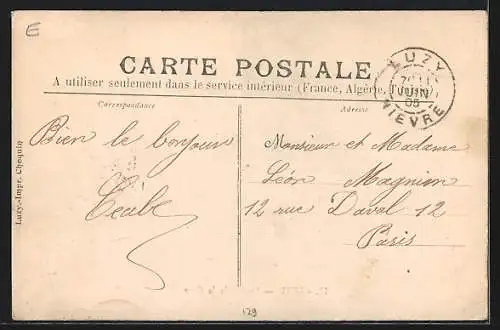 E
CARTE POSTALE
A utiliser seulement dans le service intérieur (France, Algérie, Tunisie)
Correspondance
Adresse
LUZY
JUIN
05
NIEVRE
Bien le bonjour
Monsieur et Madame
Léon Magnien
12 rue Daval 12
Paris
Luzy.-Impr. Chequin
129